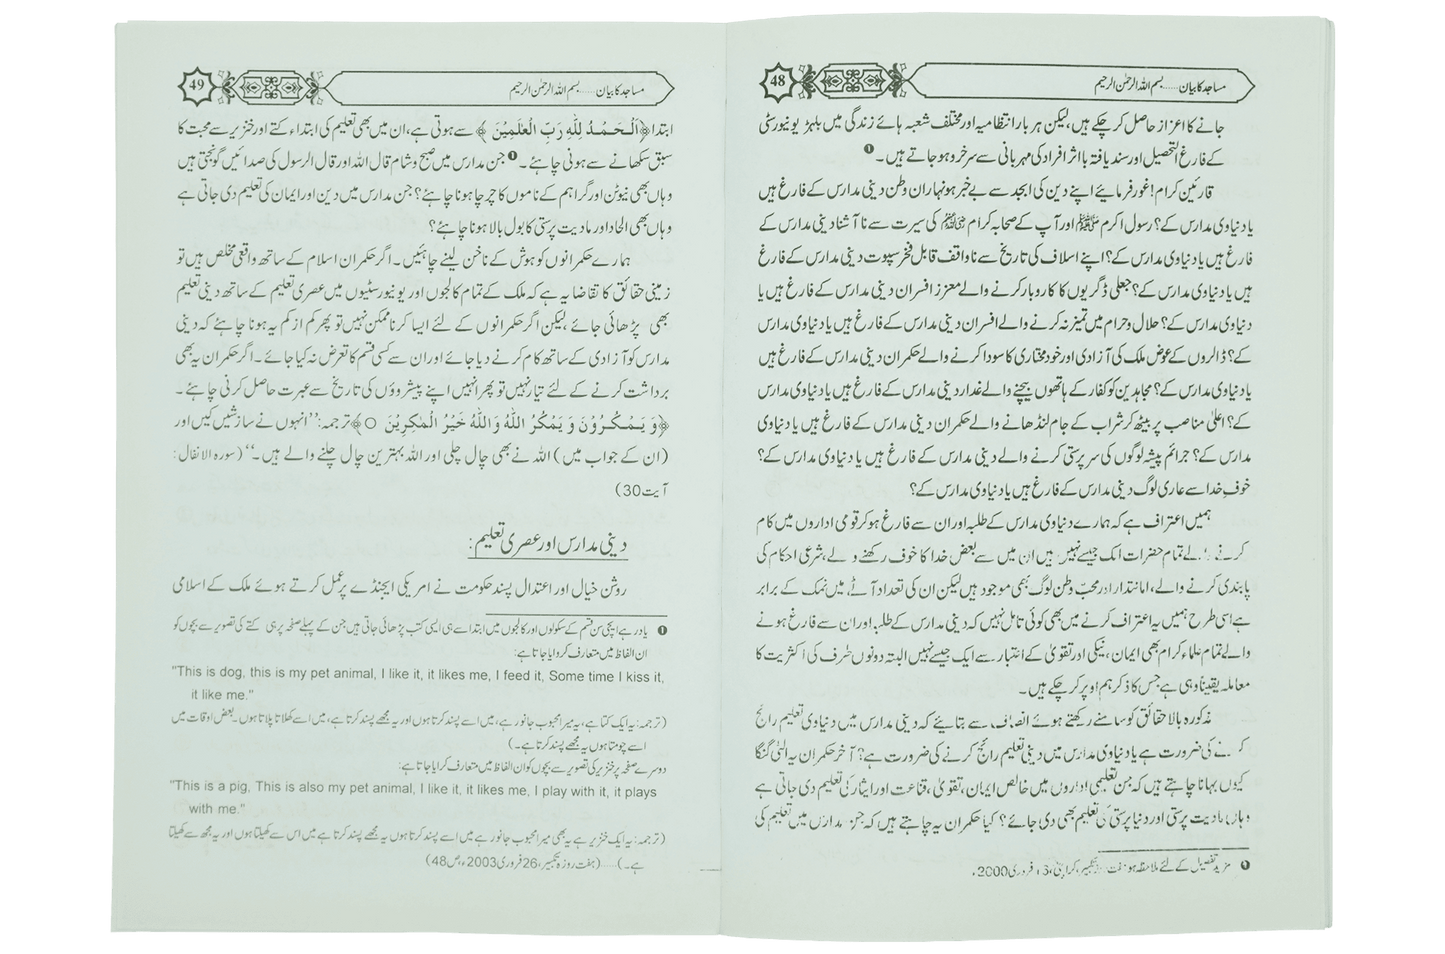 48
مساجد کا بیان ...... بسم اللہ الرحمٰن الرحیم
جانے کا اعزاز حاصل کر چکے ہیں، لیکن ہر بار انتظامیہ اور مختلف شعبہ ہائے زندگی میں بلہڑ یونیورسٹی
کے فارغ التحصیل اور سند یافتہ با اثر افراد کی مہربانی سے سرخرو ہو جاتے ہیں۔ ❶
قارئین کرام! غور فرمائیے اپنے دین کی ابجد سے بے خبر ہونہاران وطن دینی مدارس کے فارغ ہیں
یا دنیاوی مدارس کے؟ رسول اکرم ﷺ اور آپ کے صحابہ کرام کی سیرت سے نا آشنا دینی مدارس کے
فارغ ہیں یا دنیاوی مدارس کے؟ اپنے اسلاف کی تاریخ سے ناواقف قابل فخر سپوت دینی مدارس کے فارغ
ہیں یا دنیاوی مدارس کے؟ جعلی ڈگریوں کا کاروبار کرنے والے معزز افسران دینی مدارس کے فارغ ہیں یا
دنیاوی مدارس کے؟ حلال و حرام میں تمیز نہ کرنے والے افسران دینی مدارس کے فارغ ہیں یا دنیاوی مدارس
کے؟ ڈالروں کے عوض ملک کی آزادی اور خود مختاری کا سودا کرنے والے حکمران دینی مدارس کے فارغ ہیں
یا دنیاوی مدارس کے؟ مجاہدین کو کفار کے ہاتھوں بیچنے والے غدار دینی مدارس کے فارغ ہیں یا دنیاوی مدارس
کے؟ اعلیٰ مناصب پر بیٹھ کر شراب کے جام لنڈھانے والے حکمران دینی مدارس کے فارغ ہیں یا دنیاوی
مدارس کے؟ جرائم پیشہ لوگوں کی سرپرستی کرنے والے دینی مدارس کے فارغ ہیں یا دنیاوی مدارس کے؟
خوف خدا سے عاری لوگ دینی مدارس کے فارغ ہیں یا دنیاوی مدارس کے؟
ہمیں اعتراف ہے کہ ہمارے دنیاوی مدارس کے طلبہ اور ان سے فارغ ہو کر قومی اداروں میں کام
کرنے والے تمام حضرات ایک جیسے نہیں ہیں ان میں سے بعض خدا کا خوف رکھنے والے، شرعی احکام کی
پابندی کرنے والے، امانتدار اور محبّ وطن لوگ بھی موجود ہیں لیکن ان کی تعداد آٹے میں نمک کے برابر
ہے اسی طرح ہمیں یہ اعتراف کرنے میں بھی کوئی تامل نہیں کہ دینی مدارس کے طلبہ اور ان سے فارغ ہونے
والے تمام علماء کرام بھی ایمان، نیکی اور تقویٰ کے اعتبار سے ایک جیسے نہیں البتہ دونوں طرف کی اکثریت کا
معاملہ یقیناً وہی ہے جس کا ذکر ہم اوپر کر چکے ہیں۔
مذکورہ بالا حقائق کو سامنے رکھتے ہوئے انصاف سے بتائیے کہ دینی مدارس میں دنیاوی تعلیم رائج
کرنے کی ضرورت ہے یا دنیاوی مدارس میں دینی تعلیم رائج کرنے کی ضرورت ہے؟ آخر حکمران یہ الٹی گنگا
کیوں بہانا چاہتے ہیں کہ جن تعلیمی اداروں میں خالص ایمان، تقویٰ، قناعت اور ایثار کی تعلیم دی جاتی ہے
وہاں مادیت پرستی اور دنیا پرستی کی تعلیم بھی دی جائے؟ کیا حکمران یہ چاہتے ہیں کہ جن مدارس میں تعلیم کی
❶ مزید تفصیل کے لئے ملاحظہ ہو ہفت تکبیر، کراچی، فروری 2000ء
49
مساجد کا بیان ...... بسم اللہ الرحمٰن الرحیم
ابتدا ﴿اَلْحَمْدُ لِلّٰهِ رَبِّ الْعٰلَمِيْنَ ﴾ سے ہوتی ہے، ان میں بھی تعلیم کی ابتداء کتے اور خنزیر سے محبت کا
سبق سکھانے سے ہونی چاہئے۔ ❶ جن مدارس میں صبح و شام قال اللہ اور قال الرسول کی صدائیں گونجتی ہیں
وہاں بھی نیوٹن اور گراہم کے ناموں کا چرچا ہونا چاہئے؟ جن مدارس میں دین اور ایمان کی تعلیم دی جاتی ہے
وہاں بھی الحاد اور مادیت پرستی کا بول بالا ہونا چاہئے؟
ہمارے حکمرانوں کو ہوش کے ناخن لینے چاہئیں۔ اگر حکمران اسلام کے ساتھ واقعی مخلص ہیں تو
زمینی حقائق کا تقاضا یہ ہے کہ ملک کے تمام کالجوں اور یونیورسٹیوں میں عصری تعلیم کے ساتھ دینی تعلیم
بھی پڑھائی جائے، لیکن اگر حکمرانوں کے لئے ایسا کرنا ممکن نہیں تو پھر کم از کم یہ ہونا چاہئے کہ دینی
مدارس کو آزادی کے ساتھ کام کرنے دیا جائے اور ان سے کسی قسم کا تعرض نہ کیا جائے۔ اگر حکمران یہ بھی
برداشت کرنے کے لئے تیار نہیں تو پھر انہیں اپنے پیشروؤں کی تاریخ سے عبرت حاصل کرنی چاہئے۔
﴿وَ يَمْكُرُوْنَ وَ يَمْكُرُ اللّٰهُ وَ اللّٰهُ خَيْرُ الْمٰكِرِيْنَ ○﴾ ترجمہ: ’’انہوں نے سازشیں کیں اور
(ان کے جواب میں) اللہ نے بھی چال چلی اور اللہ بہترین چال چلنے والے ہیں۔‘‘ (سورہ الانفال:
آیت 30)
دینی مدارس اور عصری تعلیم:
روشن خیال اور اعتدال پسند حکومت نے امریکی ایجنڈے پر عمل کرتے ہوئے ملک کے اسلامی
❶ یاد رہے ایچی سن قسم کے سکولوں اور کالجوں میں ابتدا سے ہی ایسی کتب پڑھائی جاتی ہیں جن کے پہلے صفحہ پر ہی کتے کی تصویر سے بچوں کو
ان الفاظ میں متعارف کروایا جاتا ہے:
"This is dog, this is my pet animal, I like it, it likes me, I feed it, Some time I kiss it,
it like me."
(ترجمہ: یہ ایک کتا ہے، یہ میرا محبوب جانور ہے، میں اسے پسند کرتا ہوں اور یہ مجھے پسند کرتا ہے، میں اسے کھلاتا پلاتا ہوں۔ بعض اوقات میں
اسے چومتا ہوں یہ مجھے پسند کرتا ہے۔)
دوسرے صفحہ پر خنزیر کی تصویر سے بچوں کو ان الفاظ میں متعارف کرایا جاتا ہے:
"This is a pig, This is also my pet animal, I like it, it likes me, I play with it, it plays
with me."
(ترجمہ: یہ ایک خنزیر ہے یہ بھی میرا محبوب جانور ہے میں اسے پسند کرتا ہوں یہ مجھے پسند کرتا ہے میں اس سے کھیلتا ہوں اور یہ مجھ سے کھیلتا
ہے۔) ...... (ہفت روزہ تکبیر، 26 فروری 2003ء، ص 48)